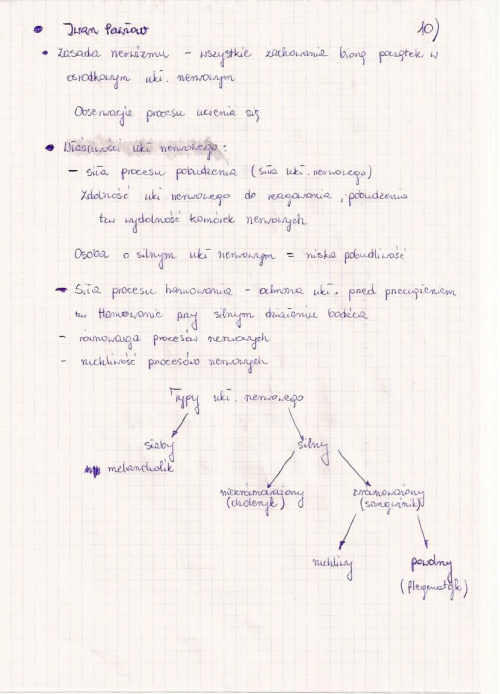 • Iwan Pawłow 10)
• Zasada nerwizmu – wszystkie zachowania biorą początek w
ośrodkowym ukł. nerwowym
Obserwacje procesu uczenia się
• Właściwości ukł nerwowego:
– siła procesu pobudzenia (siła ukł. nerwowego)
Zdolność ukł nerwowego do reagowania, pobudzenia
tzw wydolność komórek nerwowych
Osoba o silnym ukł nerwowym = niska pobudliwość
– Siła procesu hamowania – ochrona ukł. przed przeciążeniem
tzw Hamowanie przy silnym działaniu bodźca
– równowaga procesów nerwowych
– ruchliwość procesów nerwowych
Typy ukł. nerwowego
słaby silny
melancholik
niezrównoważony zrównoważony
(choleryk) (sangwinik)
ruchliwy powolny
(flegmatyk)